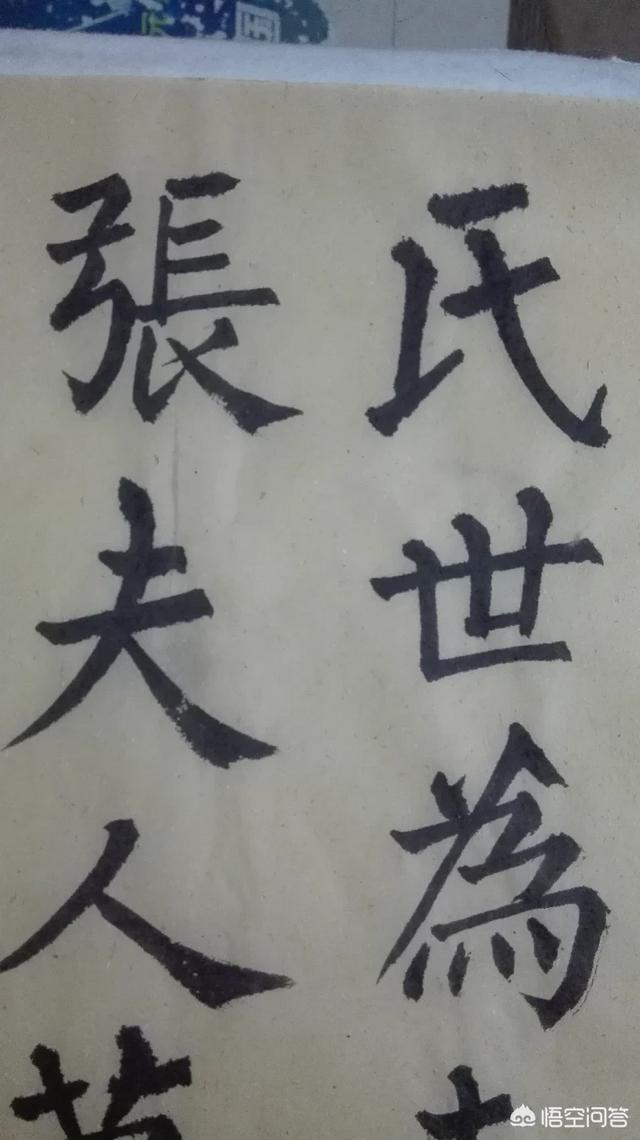 氏世為
張夫人
悟空问答